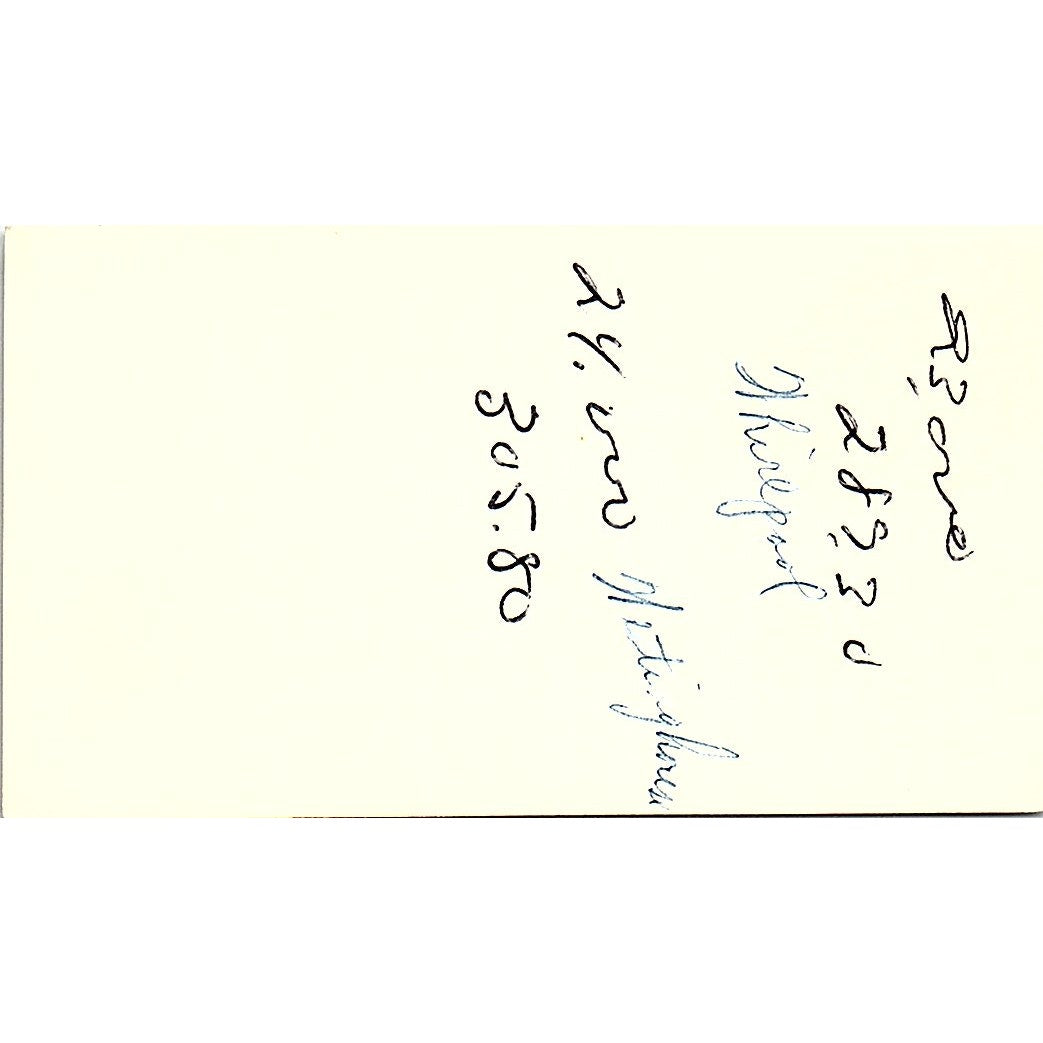 23,000
28,330
Whirlpool
24.000 Westinghouse
305.80